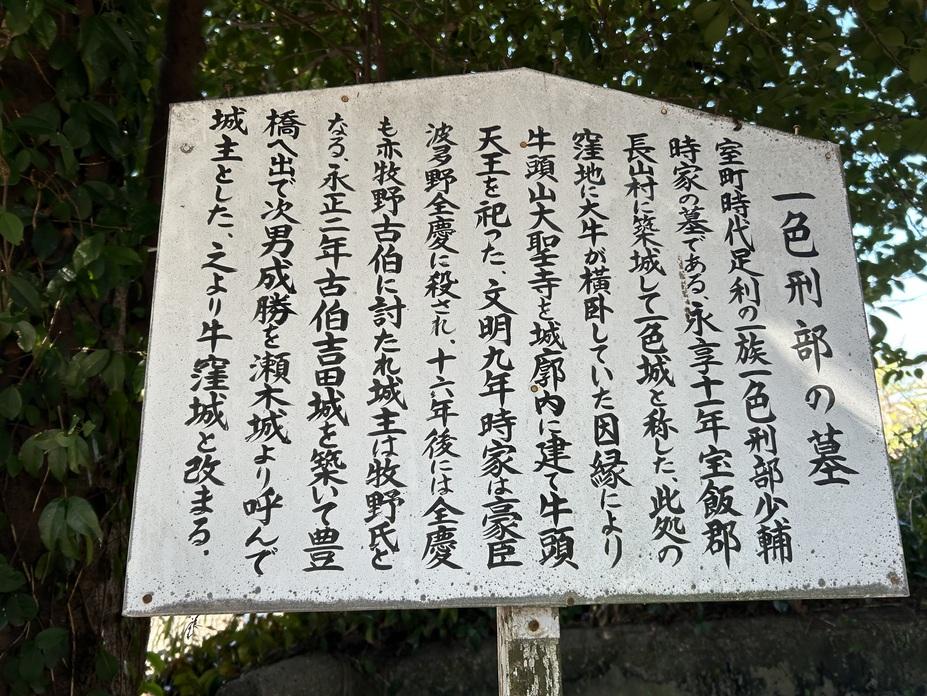 一色刑部の墓
室町時代足利の一族一色刑部少輔
時家の墓である、永享十一年宝飯郡
長山村に築城して一色城と称した、此処の
窪地に大牛が横臥していた因縁により
牛頭山大聖寺を城廓内に建て牛頭
天王を祀った、文明九年時家は豪臣
波多野全慶に殺され、十六年後には全慶
も亦牧野古伯に討たれ城主は牧野氏と
なる、永正二年古伯吉田城を築いて豊
橋へ出で次男成勝を瀬木城より呼んで
城主とした、之より牛窪城と改まる.